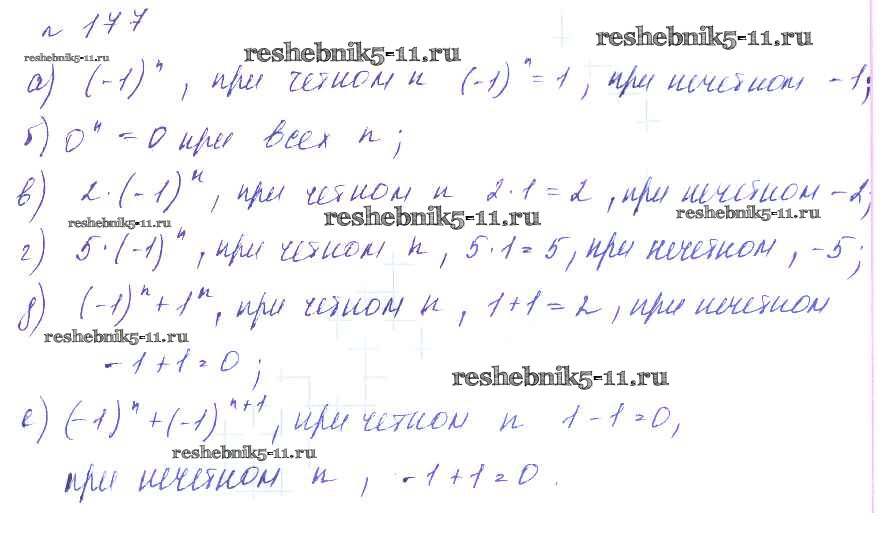 № 177
reshebnik5-11.ru reshebnik5-11.ru reshebnik5-11.ru
а) (-1)ⁿ, при четном n (-1)ⁿ = 1, при нечетном -1;
б) 0ⁿ = 0 при всех n;
в) 2·(-1)ⁿ, при четном n 2·1 = 2, при нечетном -2;
reshebnik5-11.ru reshebnik5-11.ru reshebnik5-11.ru
г) 5·(-1)ⁿ, при четном n, 5·1 = 5, при нечетном, -5;
д) (-1)ⁿ + 1ⁿ, при четном n, 1+1 = 2, при нечетном
reshebnik5-11.ru
-1+1=0;
reshebnik5-11.ru
е) (-1)ⁿ + (-1)ⁿ⁺¹, при четном n 1-1=0,
reshebnik5-11.ru
при нечетном n, -1+1=0.